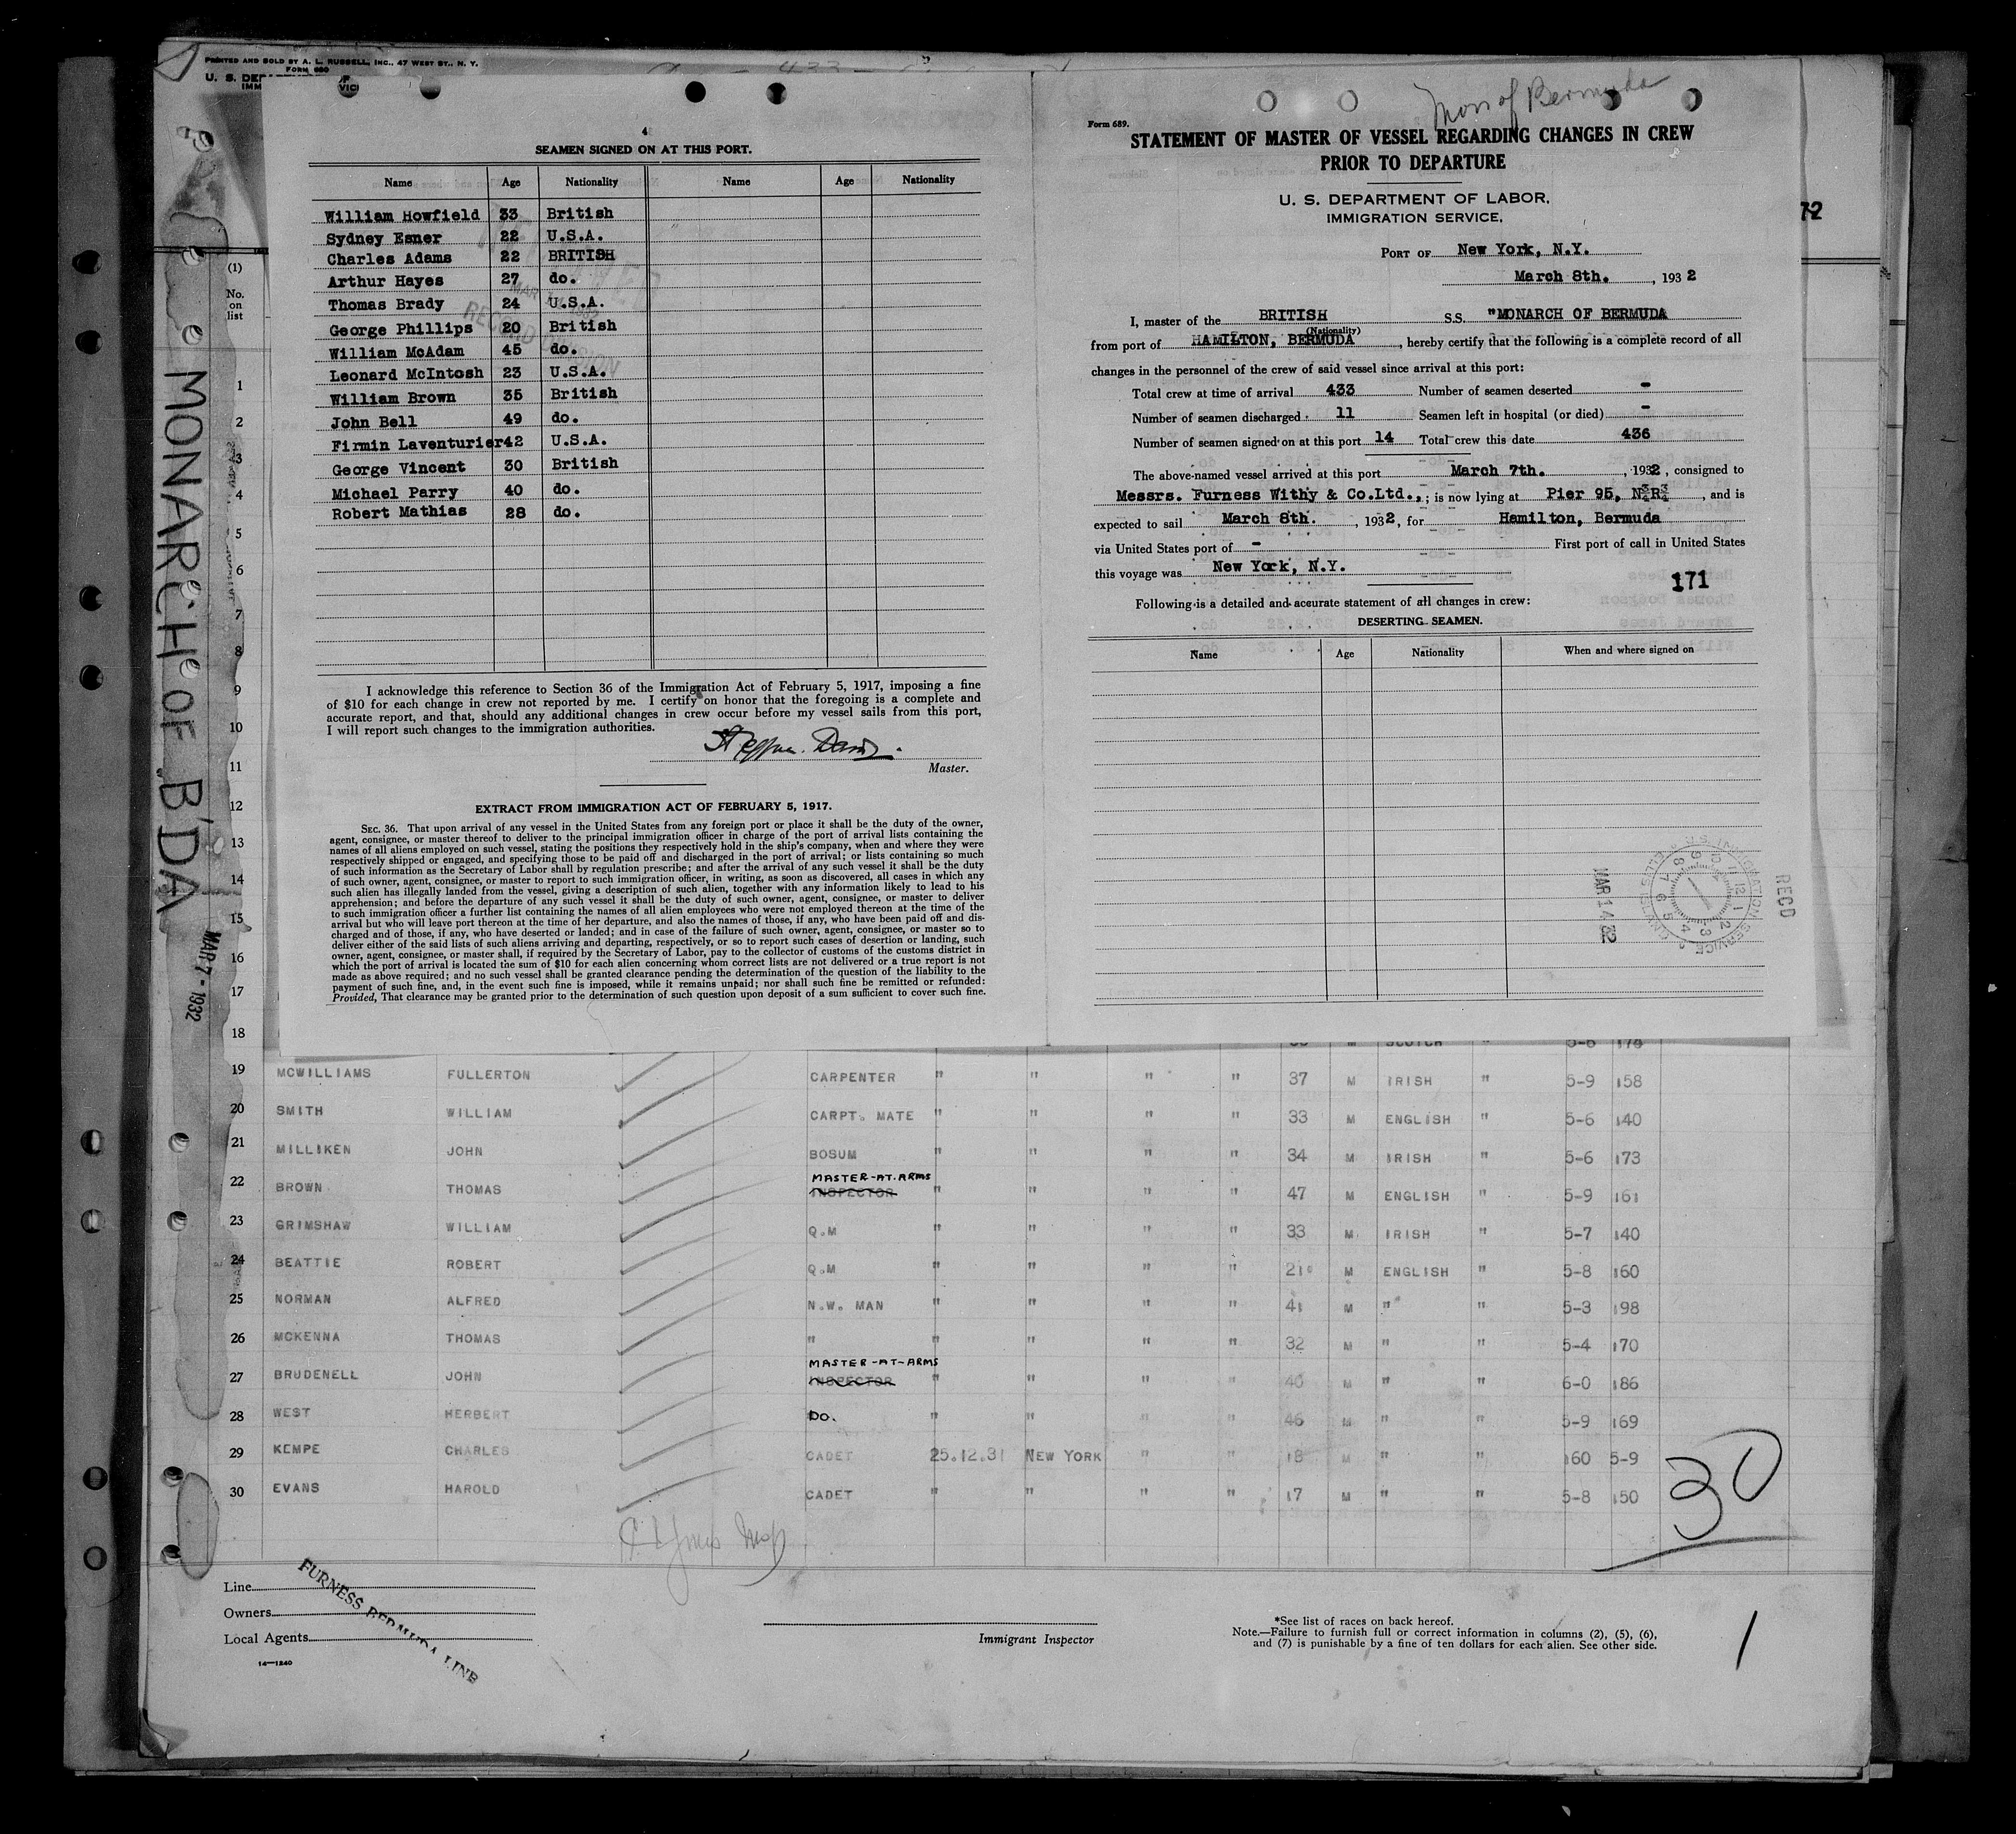 PRINTED AND SOLD BY A. L. RUSSELL, INC., 47 WEST ST., N. Y.
FORM 680
4
SEAMEN SIGNED ON AT THIS PORT.
Name Age Nationality Name Age Nationality
William Howfield 33 British
Sydney Esner 22 U.S.A.
Charles Adams 22 BRITISH
Arthur Hayes 27 do.
Thomas Brady 24 U.S.A.
George Phillips 20 British
William McAdam 45 do.
Leonard McIntosh 23 U.S.A.
William Brown 35 British
John Bell 49 do.
Firmin Laventurier 42 U.S.A.
George Vincent 30 British
Michael Parry 40 do.
Robert Mathias 28 do.
I acknowledge this reference to Section 36 of the Immigration Act of February 5, 1917, imposing a fine
of $10 for each change in crew not reported by me. I certify on honor that the foregoing is a complete and
accurate report, and that, should any additional changes in crew occur before my vessel sails from this port,
I will report such changes to the immigration authorities.
Master.
EXTRACT FROM IMMIGRATION ACT OF FEBRUARY 5, 1917.
SEC. 36. That upon arrival of any vessel in the United States from any foreign port or place it shall be the duty of the owner,
agent, consignee, or master thereof to deliver to the principal immigration officer in charge of the port of arrival lists containing the
names of all aliens employed on such vessel, stating the positions they respectively hold in the ship's company, when and where they were
respectively shipped or engaged, and specifying those to be paid off and discharged in the port of arrival; or lists containing so much
of such information as the Secretary of Labor shall by regulation prescribe; and after the arrival of any such vessel it shall be the duty
of such owner, agent, consignee, or master to report to such immigration officer, in writing, as soon as discovered, all cases in which any
such alien has illegally landed from the vessel, giving a description of such alien, together with any information likely to lead to his
apprehension; and before the departure of any such vessel it shall be the duty of such owner, agent, consignee, or master to deliver
to such immigration officer a further list containing the names of all alien employees who were not employed thereon at the time of the
arrival but who will leave port thereon at the time of her departure, and also the names of those, if any, who have been paid off and dis-
charged and of those, if any, who have deserted or landed; and in case of the failure of such owner, agent, consignee, or master so to
deliver either of the said lists of such aliens arriving and departing, respectively, or so to report such cases of desertion or landing, such
owner, agent, consignee, or master shall, if required by the Secretary of Labor, pay to the collector of customs of the customs district in
which the port of arrival is located the sum of $10 for each alien concerning whom correct lists are not delivered or a true report is not
made as above required; and no such vessel shall be granted clearance pending the determination of the question of the liability to the
payment of such fine, and, in the event such fine is imposed, while it remains unpaid; nor shall such fine be remitted or refunded:
Provided, That clearance may be granted prior to the determination of such question upon deposit of a sum sufficient to cover such fine.
Mon of Bermuda
Form 689.
STATEMENT OF MASTER OF VESSEL REGARDING CHANGES IN CREW
PRIOR TO DEPARTURE
U. S. DEPARTMENT OF LABOR,
IMMIGRATION SERVICE,
PORT OF New York, N.Y.
March 8th. , 1932
I, master of the BRITISH S.S. "MONARCH OF BERMUDA
(Nationality)
from port of HAMILTON, BERMUDA , hereby certify that the following is a complete record of all
changes in the personnel of the crew of said vessel since arrival at this port:
Total crew at time of arrival 433 Number of seamen deserted -
Number of seamen discharged 11 Seamen left in hospital (or died) -
Number of seamen signed on at this port 14 Total crew this date 436
The above-named vessel arrived at this port March 7th. , 1932, consigned to
Messrs. Furness Withy & Co.Ltd., ; is now lying at Pier 95, N.R. , and is
expected to sail March 8th. , 1932, for Hamilton, Bermuda
via United States port of - First port of call in United States
this voyage was New York, N.Y.
171
Following is a detailed and accurate statement of all changes in crew:
DESERTING SEAMEN.
Name Age Nationality When and where signed on
RECD
MAR 14 32
U.S. IMMIGRATION SERVICE
72
MONARCH OF B'DA
MAR 7 - 1932
(1)
No.
on
list
1
2
3
4
5
6
7
8
9
10
11
12
13
14
15
16
17
18 SCOTCH " 5-6 178
19 MCWILLIAMS FULLERTON CARPENTER " " " " 37 M IRISH " 5-9 158
20 SMITH WILLIAM CARPT. MATE " " " " 33 M ENGLISH " 5-6 140
21 MILLIKEN JOHN BOSUM " " " " 34 M IRISH " 5-6 173
22 BROWN THOMAS MASTER-AT-ARMS INSPECTOR " " " " 47 M ENGLISH " 5-9 161
23 GRIMSHAW WILLIAM Q.M " " " " 33 M IRISH " 5-7 140
24 BEATTIE ROBERT Q.M " " " " 21 M ENGLISH " 5-8 160
25 NORMAN ALFRED N.W. MAN " " " " 41 M " " 5-3 198
26 MCKENNA THOMAS " " " " " 32 M " " 5-4 170
27 BRUDENELL JOHN MASTER-AT-ARMS INSPECTOR " " " " 40 M " " 6-0 186
28 WEST HERBERT DO. " " " " 46 M " " 5-9 169
29 KEMPE CHARLES CADET 25.12.31 NEW YORK " " 18 M " " 160 5-9
30 EVANS HAROLD CADET " " " " 17 M " " 5-8 150
30
Line
Owners
Local Agents
FURNESS BERMUDA LINE
14—1240
Immigrant Inspector
*See list of races on back hereof.
Note.—Failure to furnish full or correct information in columns (2), (5), (6),
and (7) is punishable by a fine of ten dollars for each alien. See other side.
1